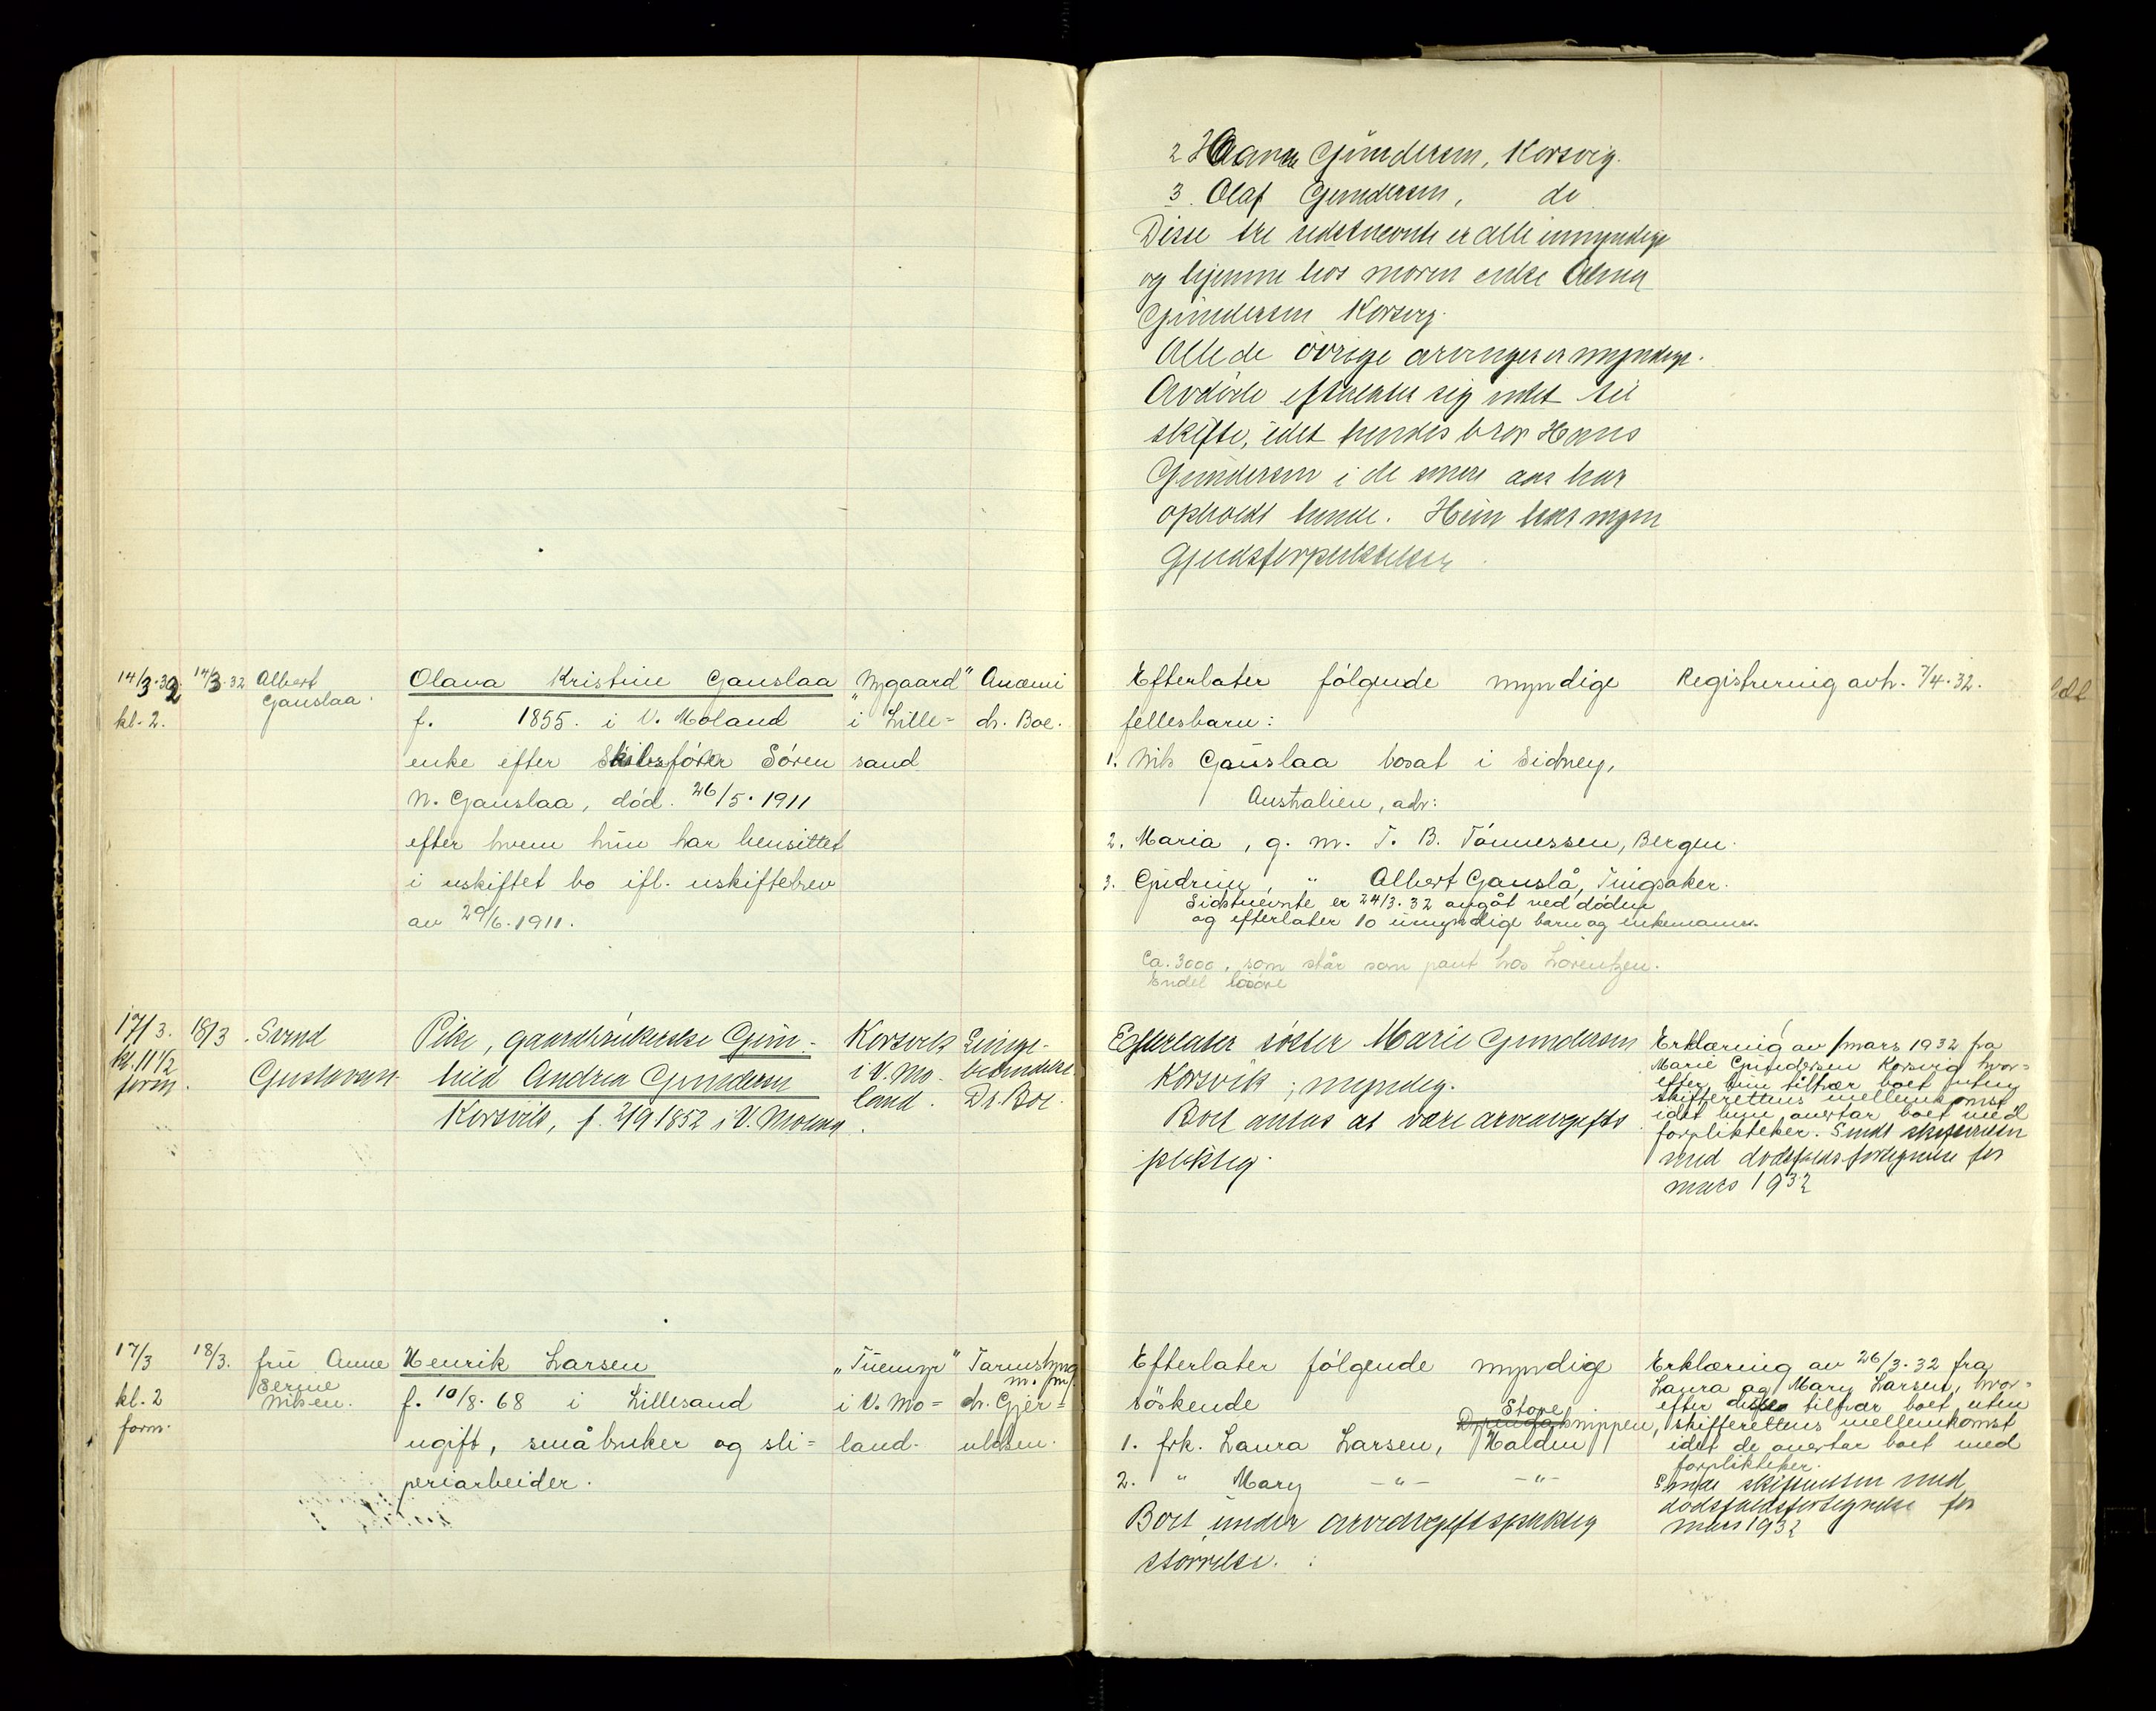 2 Haavra Gundersen, Korsvig.
3. Olaf Gundersen, do
Disse tre sidstnevnte er alle umyndige
og hjemme hos moren enke Alma
Gundersen Korsvig.
Alle de övrige arvinger er myndige.
Avdöde efterlater sig intet til
skifte, idet hendes bror Hans
Gundersen i de senere aar har
opholdt hende. Hun har ingen
Gjeldsforpliktelser.
14/3.32 kl. 2.
14/3.32
Albert
Gauslaa.
Olava Kristine Gauslaa
f. 1855. i V. Moland
enke efter Skibsförer Sören
N. Gauslaa, död. 26/5.1911
efter hvem hun har hensittet
i uskiftet bo ifl. uskiftebrev
av 29/6.1911.
"Nygaard"
i Lille=
sand
Anæmi
dr. Boe.
Efterlater fölgende myndige
fellesbarn:
1. Nils Gauslaa bosat i Sidney,
Australien, adr:
2. Maria, g. m. T. B. Tönnessen, Bergen.
3. Gudrun, " Albert Gauslå, Tingsaker.
Sidstnevnte er 24/3.32 avgåt ved döden
og efterlater 10 umyndige barn og enkemann.
Ca. 3000, som står som pant hos Lorentzen.
Endel lösöre
Registrering avh. 7/4.32.
17/3.
kl. 11 1/2
form.
18/3
Svend
Gustavsen
Pike, gaardbrukerske Gun-
hild Andrea Gundersen
Korsvik, f. 2/9 1852 i V. Moland.
Korsvik
i V. Mo-
land.
Lunge-
betendelse
Dr. Boe.
Efterlater söster Marie Gundersen
Korsvik; myndig.
Boet antas at være arveavgifts
pliktig.
Erklæring av / mars 1932 fra
Marie Gundersen Korsvig hvor=
efter hun tiltrær boet uten
skifterettens mellemkomst
idet hun overtar boet med
forplikteher. Sendt skifteretten
med dödsfaldsfortegnelse for
mars 1932
17/3
kl. 2
form.
18/3.
fru Anne
Serine
Nilsen.
Henrik Larsen
f. 10/8.68 i Lillesand
ugift, småbruker og sli=
periarbeider.
"Tuemyr"
i V. Mo=
land.
Tarmslyng
m. m.
dr. Gjer=
uldsen.
Efterlater fölgende myndige
söskende
Stope
nippen,
1. frk. Laura Larsen, Halden
2. " Mary -"- -"-
Boet under arveavgiftspliktig
störrelse.
Erklæring av 26/3.32 fra
Laura og Mary Larsen, hvor=
efter disse tiltrær boet uten
skifterettens mellemkomst
idet de overtar boet med
forplikteher.
Sendt skifteretten med
dödsfaldsfortegnelse for
mars 1932